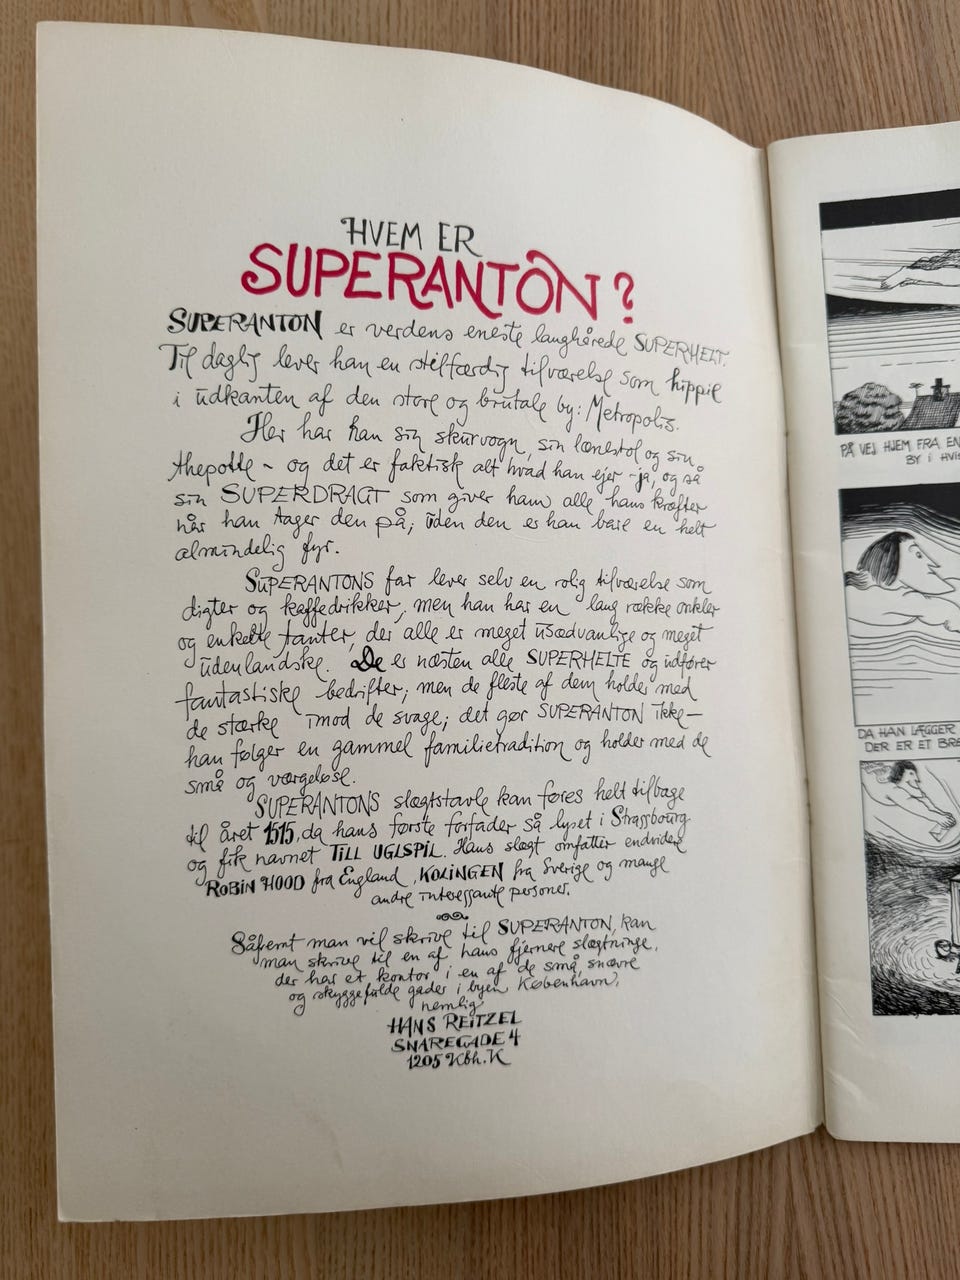 HVEM ER
SUPERANTON?
SUPERANTON er verdens eneste langhårede SUPERHELT.
Til daglig lever han en stilfærdig tilværelse som hippie
i udkanten af den store og brutale by: Metropolis.
Her har han sin skurvogn, sin lænestol og sin
thepotte - og det er faktisk alt hvad han ejer - ja, og så
sin SUPERDRAGT som giver ham alle hans kræfter
når han tager den på; uden den er han bare en helt
almindelig fyr.
SUPERANTONS far lever selv en rolig tilværelse som
digter og kaffedrikker, men han har en lang række onkler
og enkelte tanter, der alle er meget usædvanlige og meget
udenlandske. De er næsten alle SUPERHELTE og udfører
fantastiske bedrifter; men de fleste af dem holder med
de stærke imod de svage; det gør SUPERANTON ikke-
han følger en gammel familietradition og holder med de
små og værgeløse.
SUPERANTONS slægtstavle kan føres helt tilbage
til året 1515, da hans første forfader så lyset i Strassbourg
og fik navnet TILL UGLSPIL. Hans slægt omfatter endvidere
ROBIN HOOD fra England, KOLINGEN fra Sverige og mange
andre interessante personer.
Såfremt man vil skrive til SUPERANTON, kan
man skrive til en af hans fjernere slægtninge,
der har et kontor i en af de små, snævre
og skyggefulde gader i byen København,
nemlig
HANS REITZEL
SNAREGADE 4
1205 Kbh. K
PÅ VEJ HJEM FRA EN
BY I HVIS
DA HAN LÆGGER
DER ER ET BRE